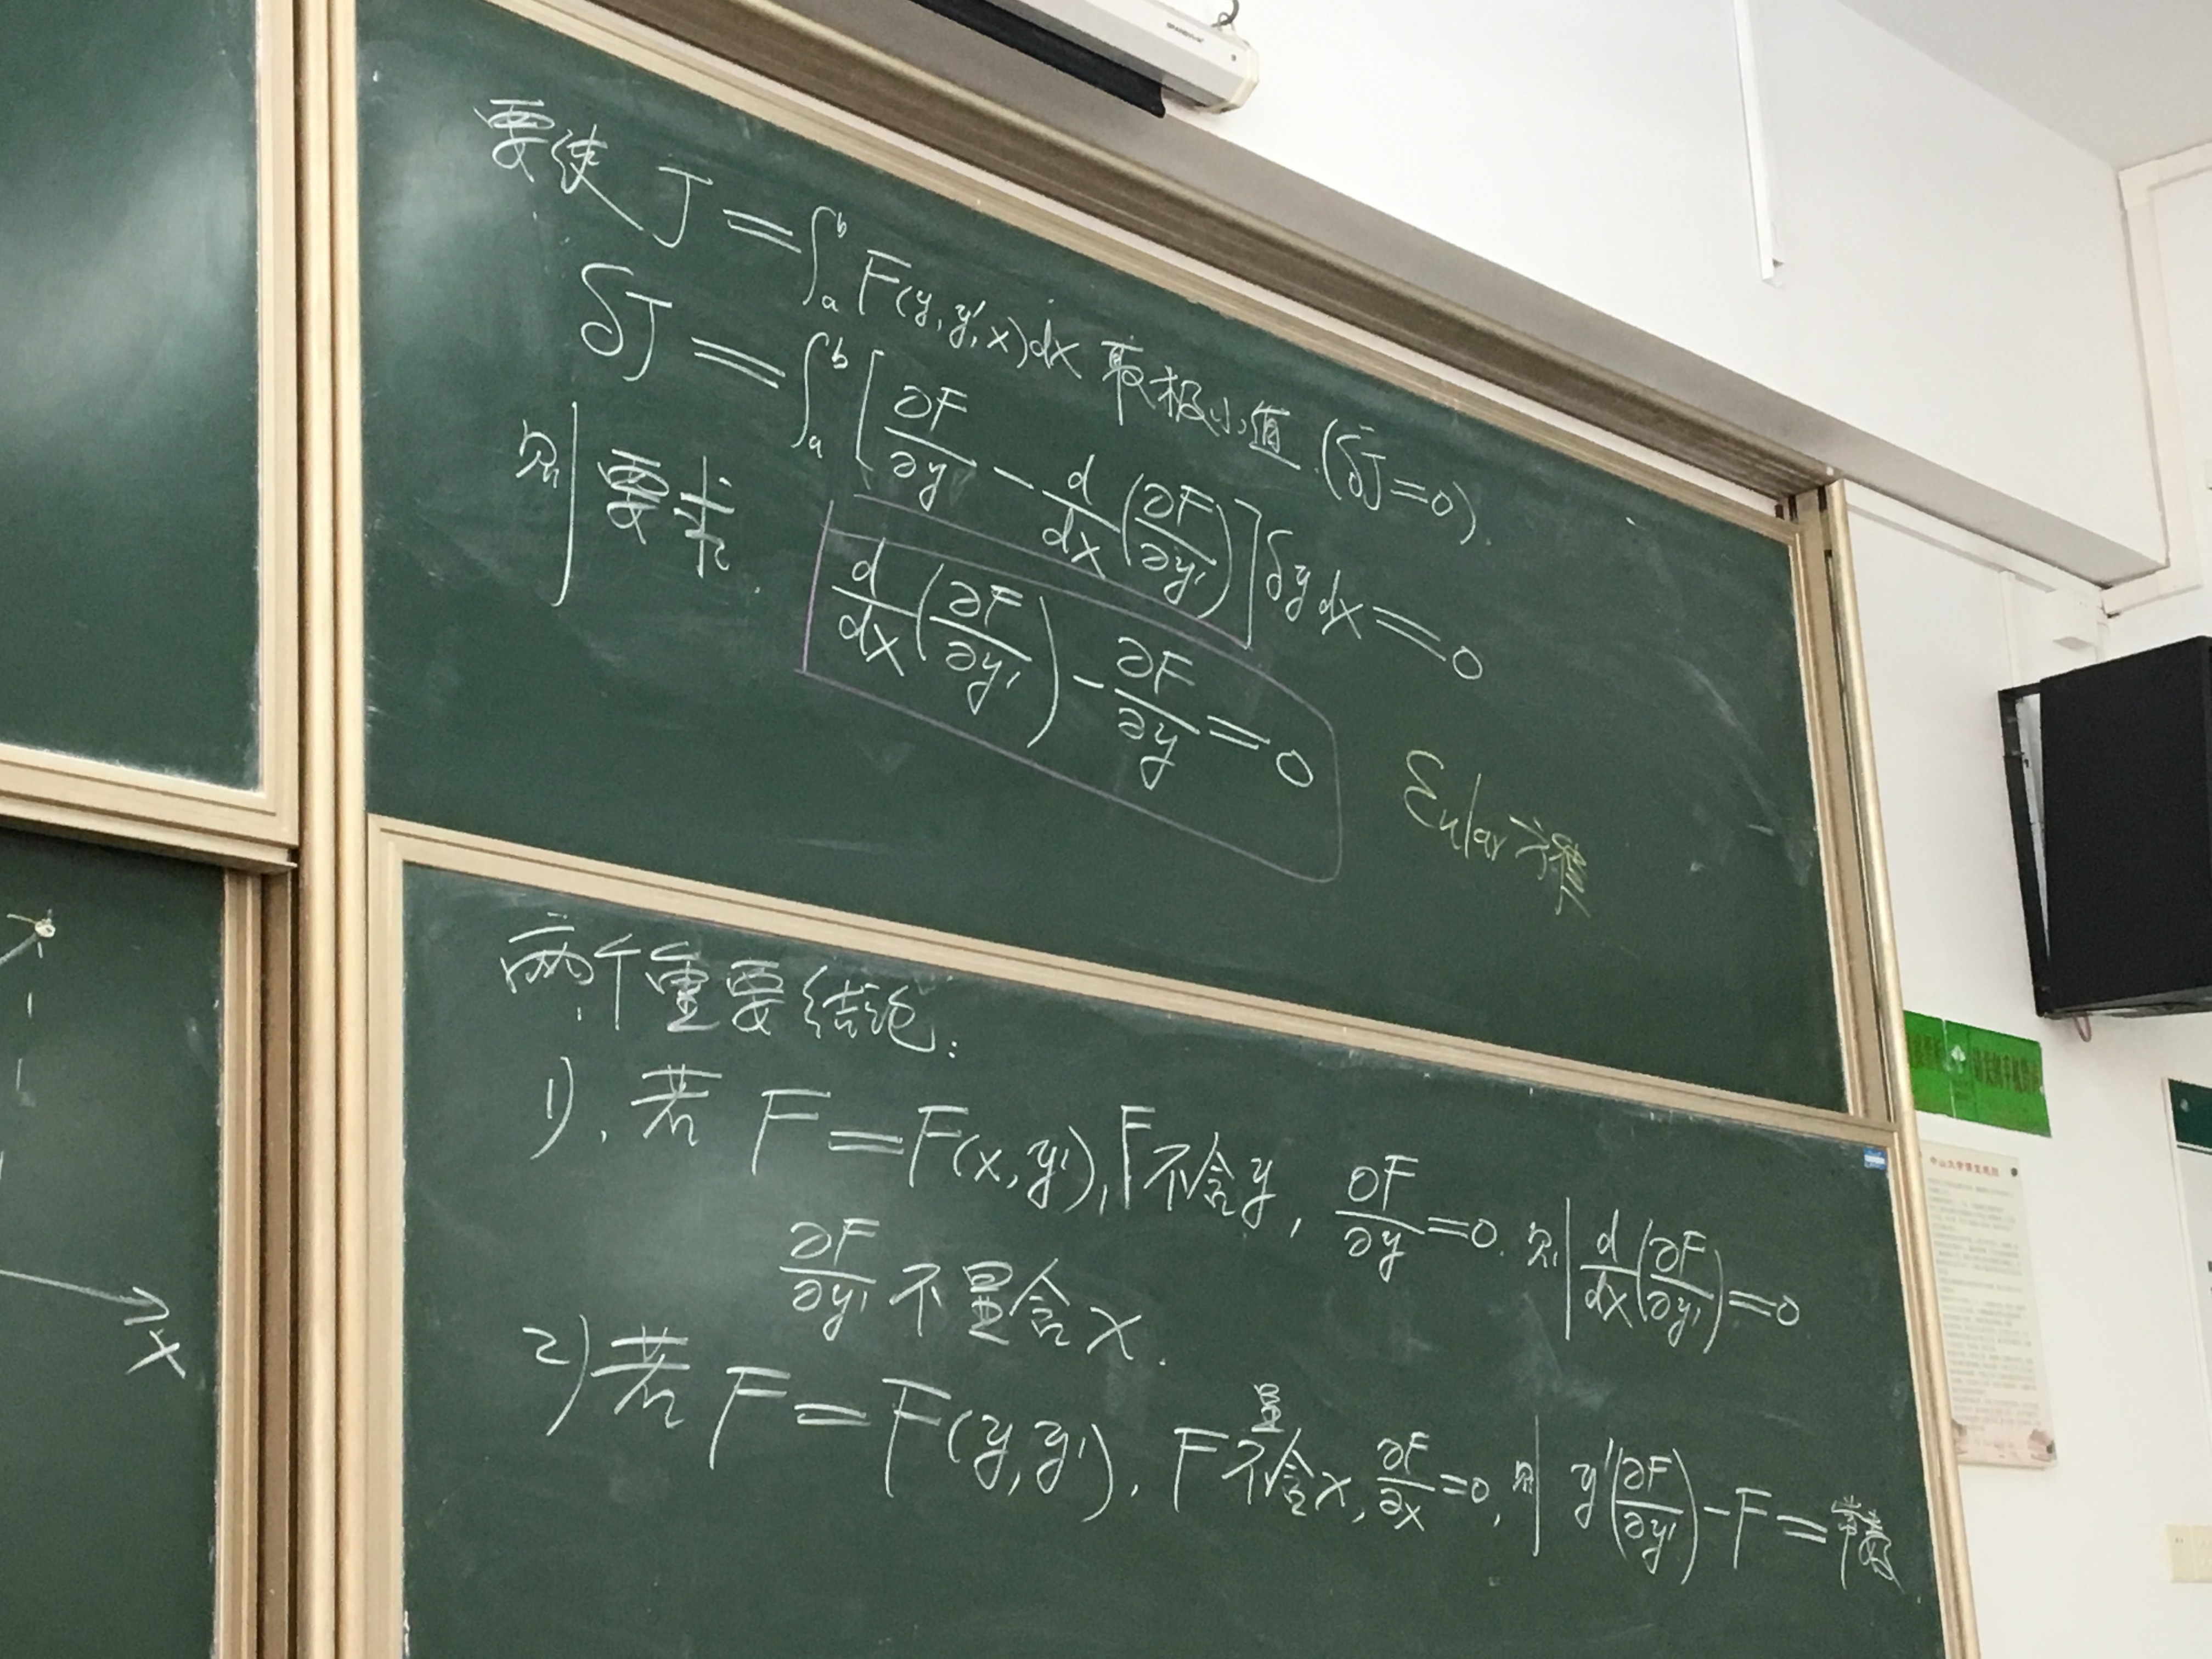 要使 J = ∫ₐᵇ F(y, y', x)dx 取极小值. (δJ=0).
δJ = ∫ₐᵇ [∂F/∂y − d/dx(∂F/∂y')] δy dx = 0
则要求.
d/dx(∂F/∂y') − ∂F/∂y = 0
Eular 方程
两个重要结论:
1). 若 F = F(x, y'), F不含y, ∂F/∂y = 0. 则 d/dx(∂F/∂y') = 0
∂F/∂y' 不显含 x.
2) 若 F = F(y, y'). F不显含x, ∂F/∂x = 0, 则 y'(∂F/∂y') − F = 常数
x